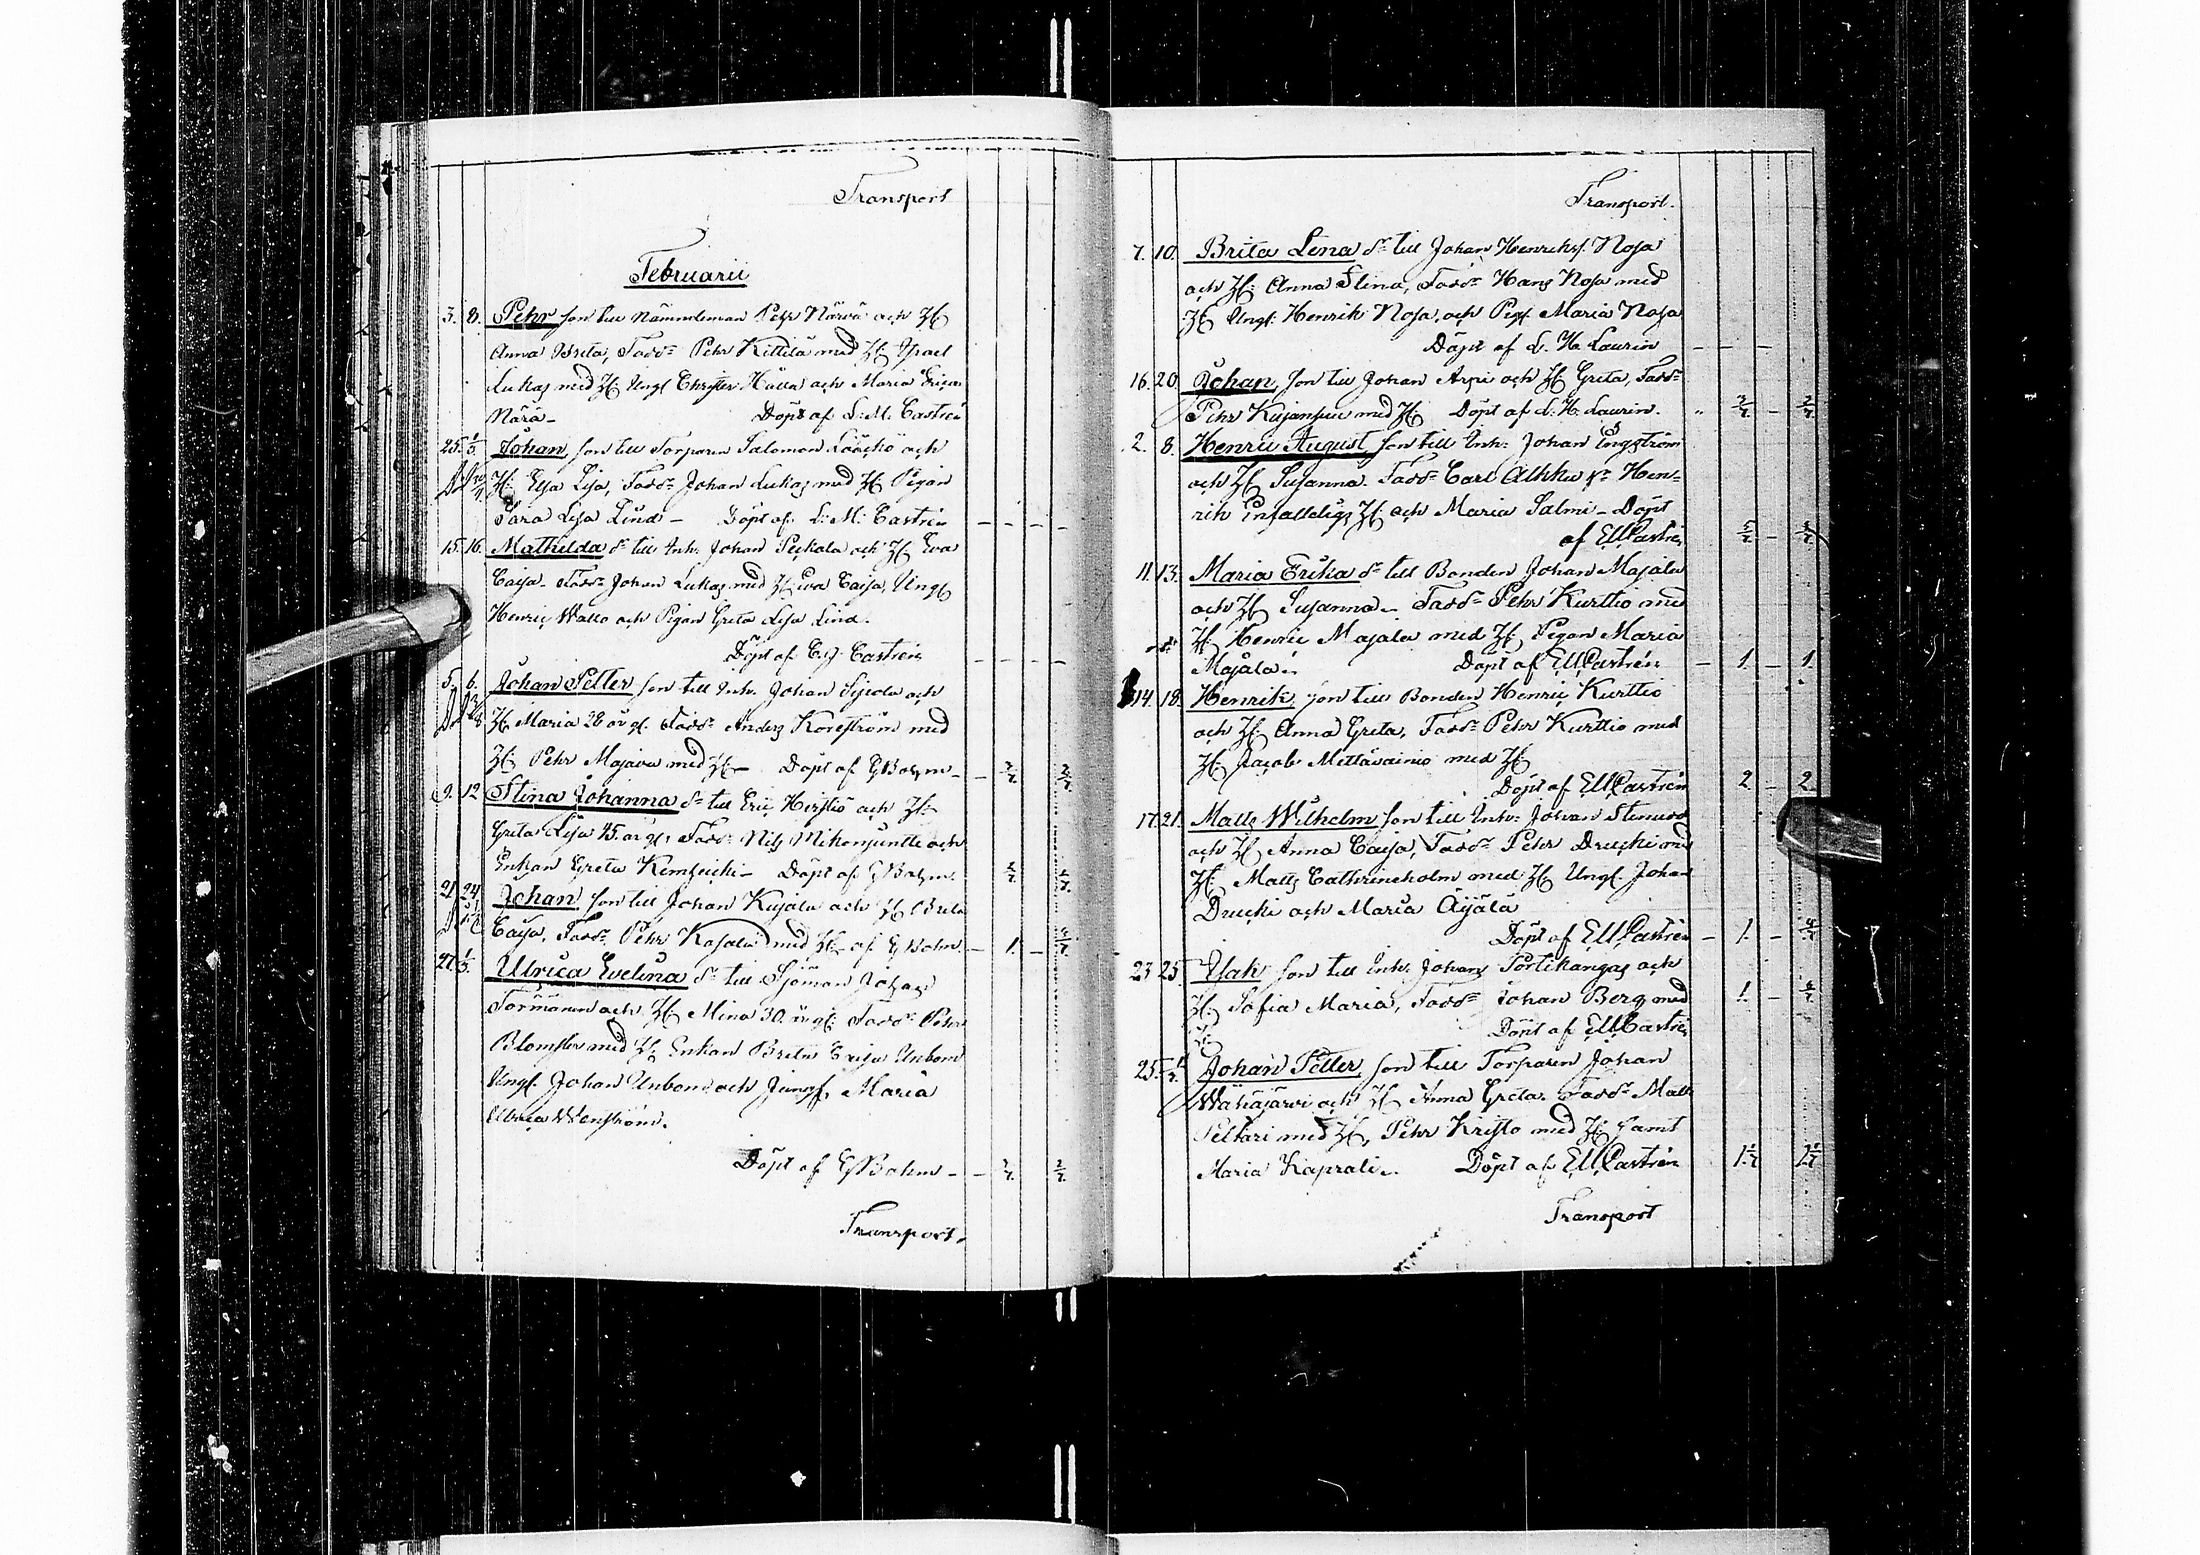 Transport
Februarii
3. 8. Pehr son till Nämndeman Pehr Närvä och H:
Anna Brita, Fadd: Pehr Kittilä med H: Ysael
Lukas med H: Ungl Christer Hälla och Maria
Närä - Döpt af L: M: Castrén
25. 1/3. Johan, son till Torparen Salomon Lööckö och
H: Elsa Lisa, Fadd: Johan Lukas med H: Pigan
Sara Lisa Lind - Döpt af L: M: Castrén
15. 16. Mathilda dr till Inh: Johan Seckala och H: Eva
Caisa - Fadd: Johan Lukas med H: Eva Caisa, Ungl
Henric Wallo och Pigan Greta Lisa Lind.
Döpt af Castrén
5. 6. Johan Petter son till Inh: Johan och
H: Maria 28 år gl. Fadd: Anders Korsström med
H: Pehr Majava med H: - Döpt af G Bohm -
9. 12 Stina Johanna dr till Eric Hirstiö och H:
Greta Lisa 45 år gl, Fadd: Nils Mikonjuntti och
Enkan Greta - Döpt af G Bohm.
21 24 Johan son till Johan Kujala och H: Brita
Caisa, Fadd: Pehr med H: af G Bohm. - 1. -
27. 1/3. Ulrica Evelina dr till Sjöman Johan
Törmänen och H: Mina 30 år gl: Fadd: Pehr
Blomster med H: Enkan Brita Caisa Unbom
Ungl. Johan Unbom och Jungf. Maria
Ulrica Wenström.
Döpt af G Bohm -
Transport.
Transport.
7. 10. Brita Lena dr till Johan Henriks. Nosa
och H: Anna Stina, Fadd: Hans Nosa med
H: Ungl: Henrik Nosa, och Pig: Maria Nosa
Döpt af L. H. Laurin
16. 20. Johan, son till Johan Arpi och H: Greta, Fadd:
Pehr Kujansuu med H: Döpt af L. H. Laurin.
2. 8. Henric August, son till Inh: Johan Engström
och H: Susanna. Fadd: Carl Alkku Hen-
rik Enfalldig, H: och Maria Salmi - Döpt
af EMCastrén
11. 13. Maria Erika dr till Bonden Johan Majala
och H: Susanna - Fadd: Pehr Kurttio med
H: Henric Majala med H: Pigan Maria
Majala. Döpt af EMCastrén - 1. - 1.
14. 18. Henrik, son till Bonden Henric Kurttio
och H: Anna Greta, Fadd: Pehr Kurttio med
H: Jacob Mettävainio med H:
Döpt af EMCastrén 2. - 2.
17. 21. Matts Wilhelm son till Inh: Johan Stenius
och H: Anna Caisa, Fadd: Pehr Drucki med
H: Matts Cathrineholm med H: Ungl. Johan
Drucki och Maria Äijälä
Döpt af EMCastrén - 1. -
23 25. Isak son till Inh: Johan Portikangas och
H: Sofia Maria, Fadd: Johan Berg med 1. -
H: Döpt af EMCastrén
25. Johan Petter, son till Torparen Johan
Wähäjärvi och H: Anna Greta. Fadd: Matts
Peltari med H:, Pehr Kristo med H: samt
Maria Kaprali. Döpt af EMCastrén
Transport